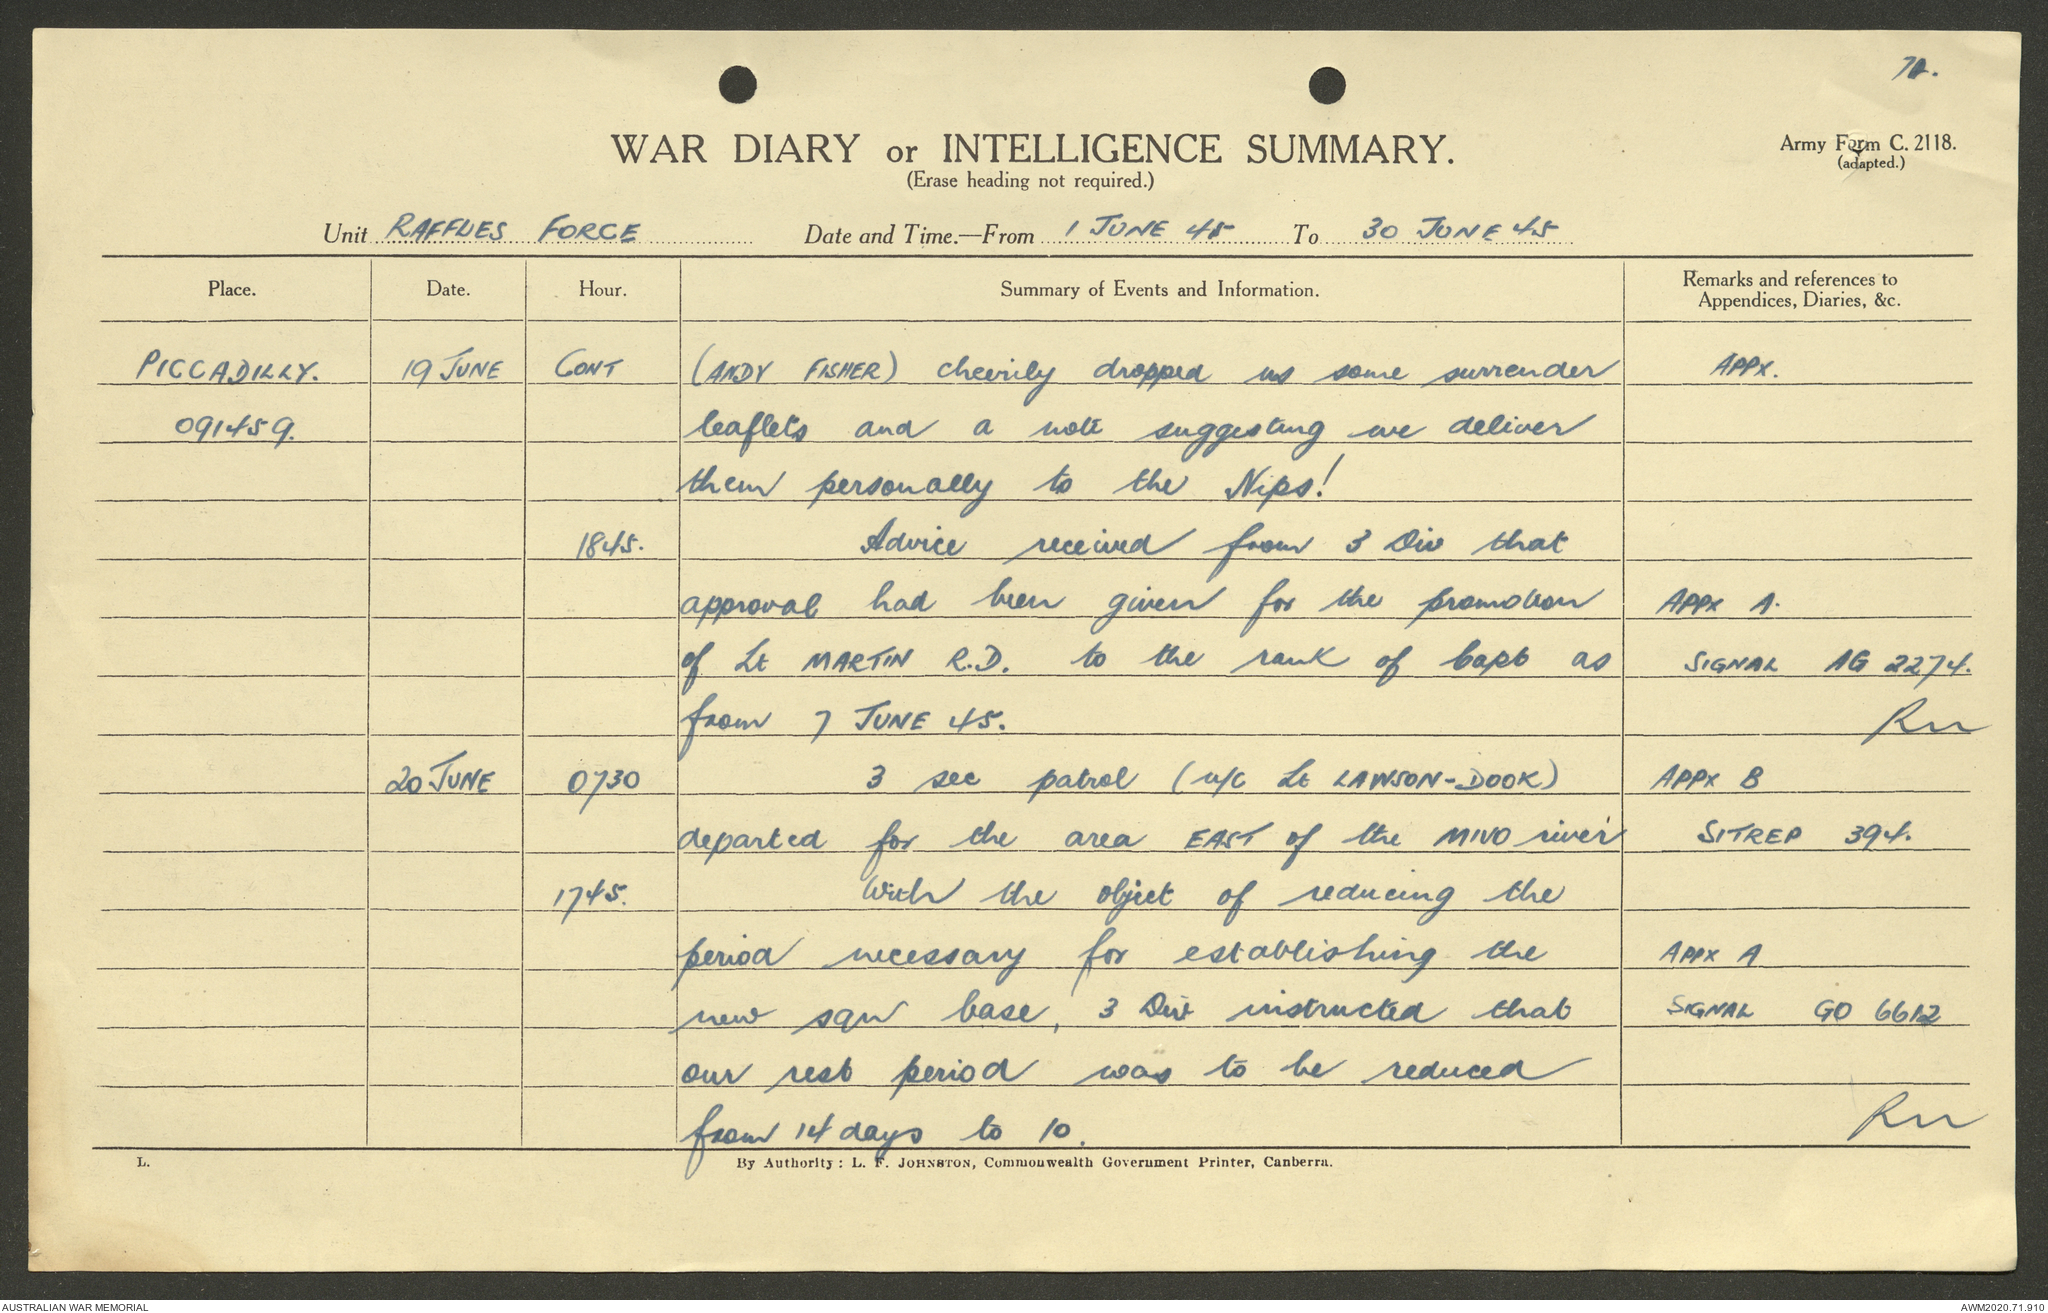 72.
WAR DIARY or INTELLIGENCE SUMMARY.
(Erase heading not required.)
Army Form C. 2118.
(adapted.)
Unit RAFFLES FORCE Date and Time.—From 1 JUNE 45 To 30 JUNE 45
Place. Date. Hour. Summary of Events and Information. Remarks and references to
Appendices, Diaries, &c.
PICCADILLY. 19 JUNE CONT (ANDY FISHER) cheerily dropped us some surrender APPX.
091459. leaflets and a note suggesting we deliver
them personally to the Nips!
1845. Advice received from 3 Div that
approval had been given for the promotion APPX A.
of Lt MARTIN R.D. to the rank of Capt as SIGNAL AG 2274.
from 7 JUNE 45.
20 JUNE 0730 3 sec patrol (u/c Lt LAWSON-DOOK) APPX B
departed for the area EAST of the MIVO river SITREP 394.
1745. With the object of reducing the
period necessary for establishing the APPX A
new sqn base, 3 Div instructed that SIGNAL GO 6612
our rest period was to be reduced
from 14 days to 10.
L. By Authority: L. F. JOHNSTON, Commonwealth Government Printer, Canberra.
AUSTRALIAN WAR MEMORIAL AWM2020.71.910